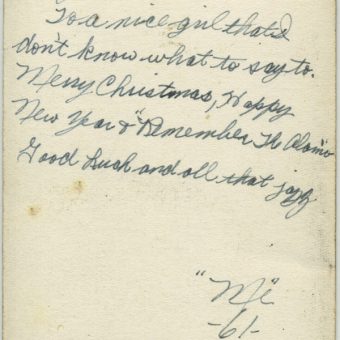 To a nice girl that I
don't know what to say to.
Merry Christmas, Happy
New Year & "Remember The Alamo"
Good Luck and all that jazz
"Me"
-61-